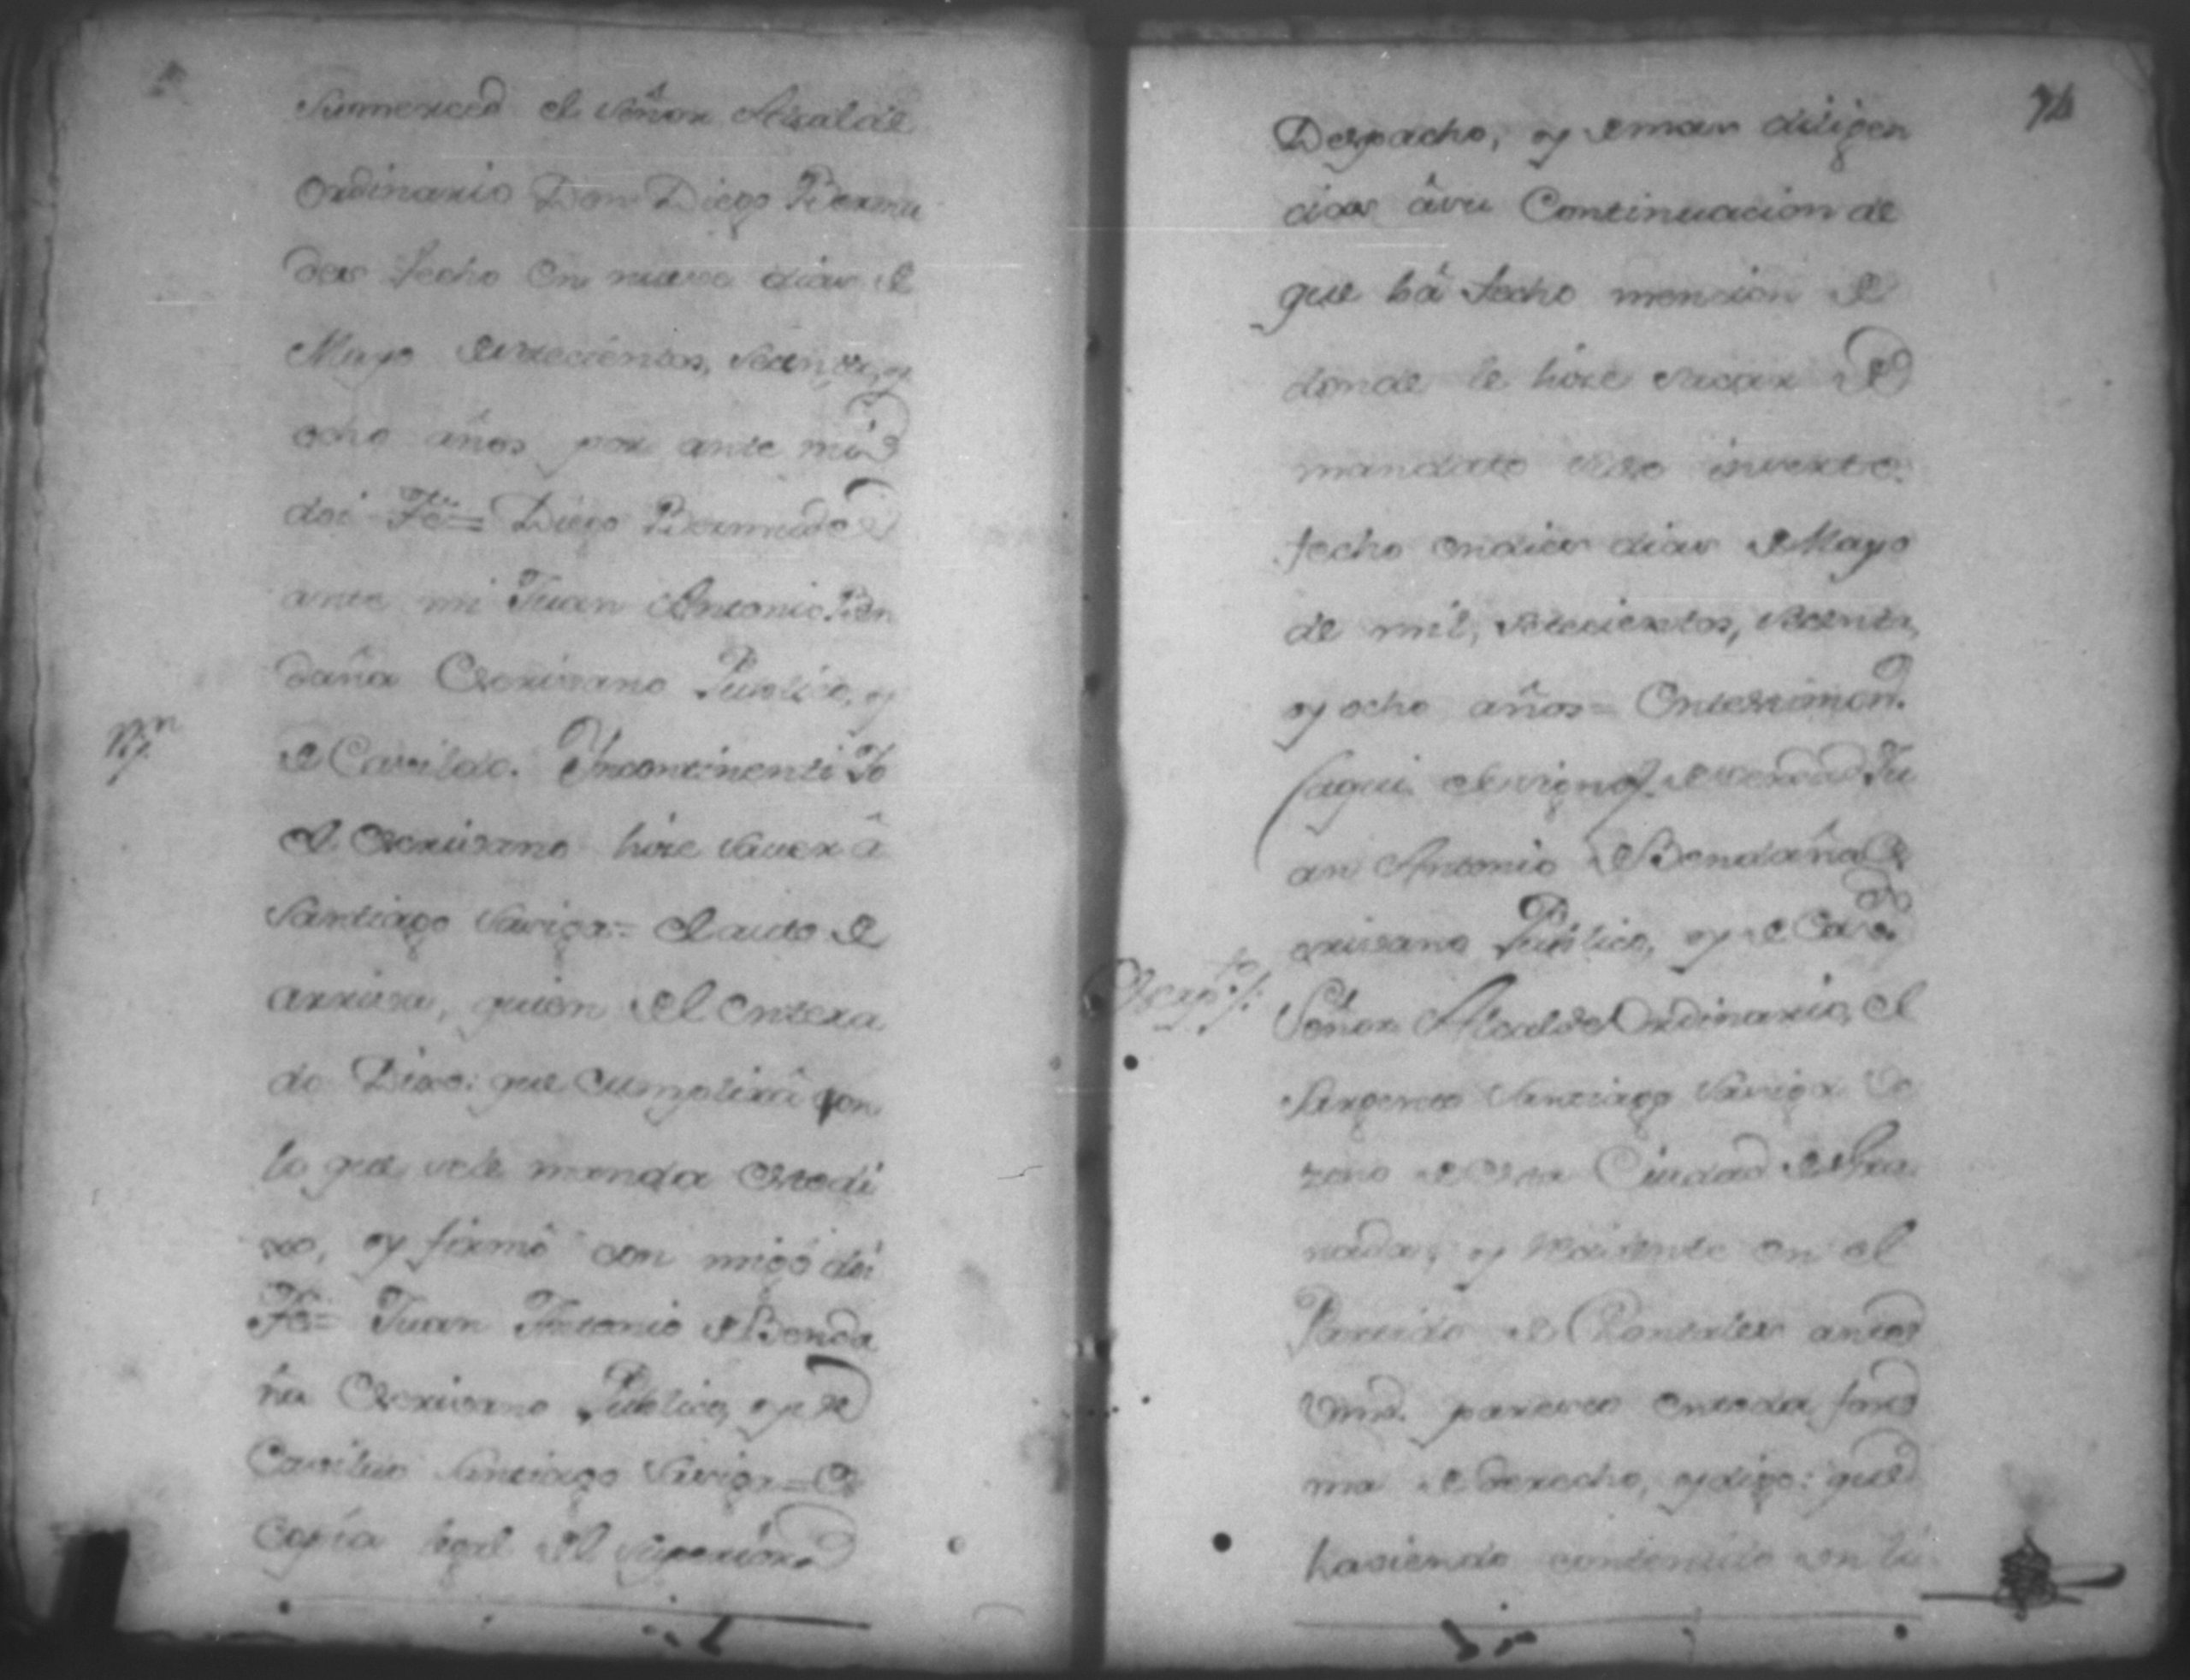 Sumerced el Señor Alcalde
Ordinario Don Diego Bermu
des fecho en nueve dias de
Mayo setecientos, setenta, y
ocho años por ante mi
doi Fé= Diego Bermudes
ante mi Juan Antonio Ben
daña Escrivano Publico, y
de Cavildo. Incontinenti Yo
el Escrivano hise saver â
Santiago Saviga= el auto de
arriva, quien del entera
do Dixo: que cumplirâ con
lo que sele manda esto di
xo, y firmô con migo doi
Fé= Juan Antonio de Benda
ña Escrivano Publico, y de
Cavildo Santiago Saviga= Es
copia legal del superior
Despacho, y demas diligen
cias âsu Continuacion de
que hâ fecho mencion de
donde le hise sacar de
mandato inserto.
fecho endies dias de Mayo
de mil, setecientos, setenta,
y ocho años= Entestimon.
(aqui el signo) de verdad Ju
an Antonio de Bendaña Es
crivano Publico, y de Cav.
Escrip.to
Señor Alcalde Ordinario, el
Sargento Santiago Saviga Ve
zino de esta Ciudad de Gra
nada, y Residente en el
Partido de Chontales antes
Vmd. paresco entoda for
ma de derecho, y digo: que
hasiendo contenido en la